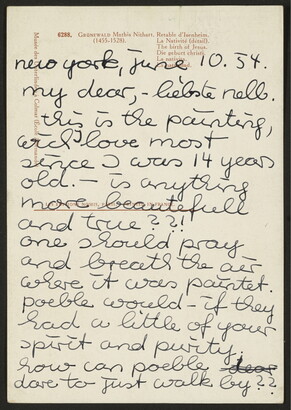 6288. GRÜNEWALD Mathis Nithart, Retable d'Isenheim.
(1455-1528). La Nativité (détail).
The birth of Jesus.
Die geburt christi.
La nativita
new york, june 10. 54.
my dear, - liebste nell.
this is the painting,
wich love most
since I was 14 years
old. - is anything
more beautefull
and true??!
one should pray
and breath the air
where it was paintet.
poeble would - if they
had a little of your
spirit and purity.
how can poeble dear
dare to just walk by??